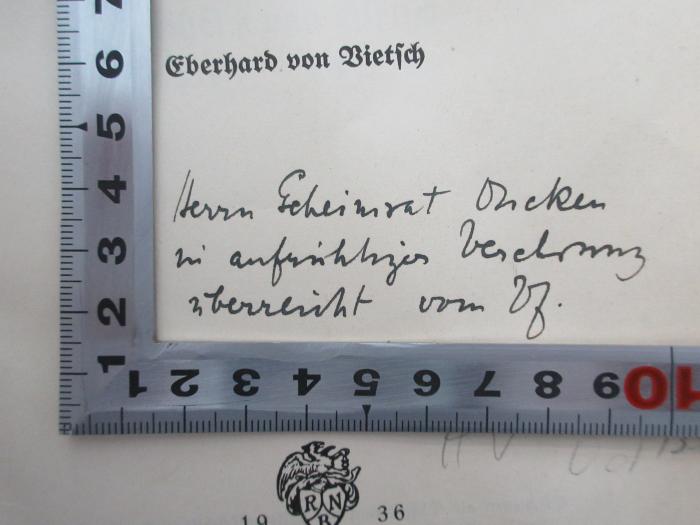 Eberhard von Vietsch
Herrn Geheimrat Oncken
in aufrichtiger Verehrung
überreicht vom Vf.
7
6
5
4
3
2
1
1 2 3 4 5 6 7 8 9 10
H V
R N
B
19 36